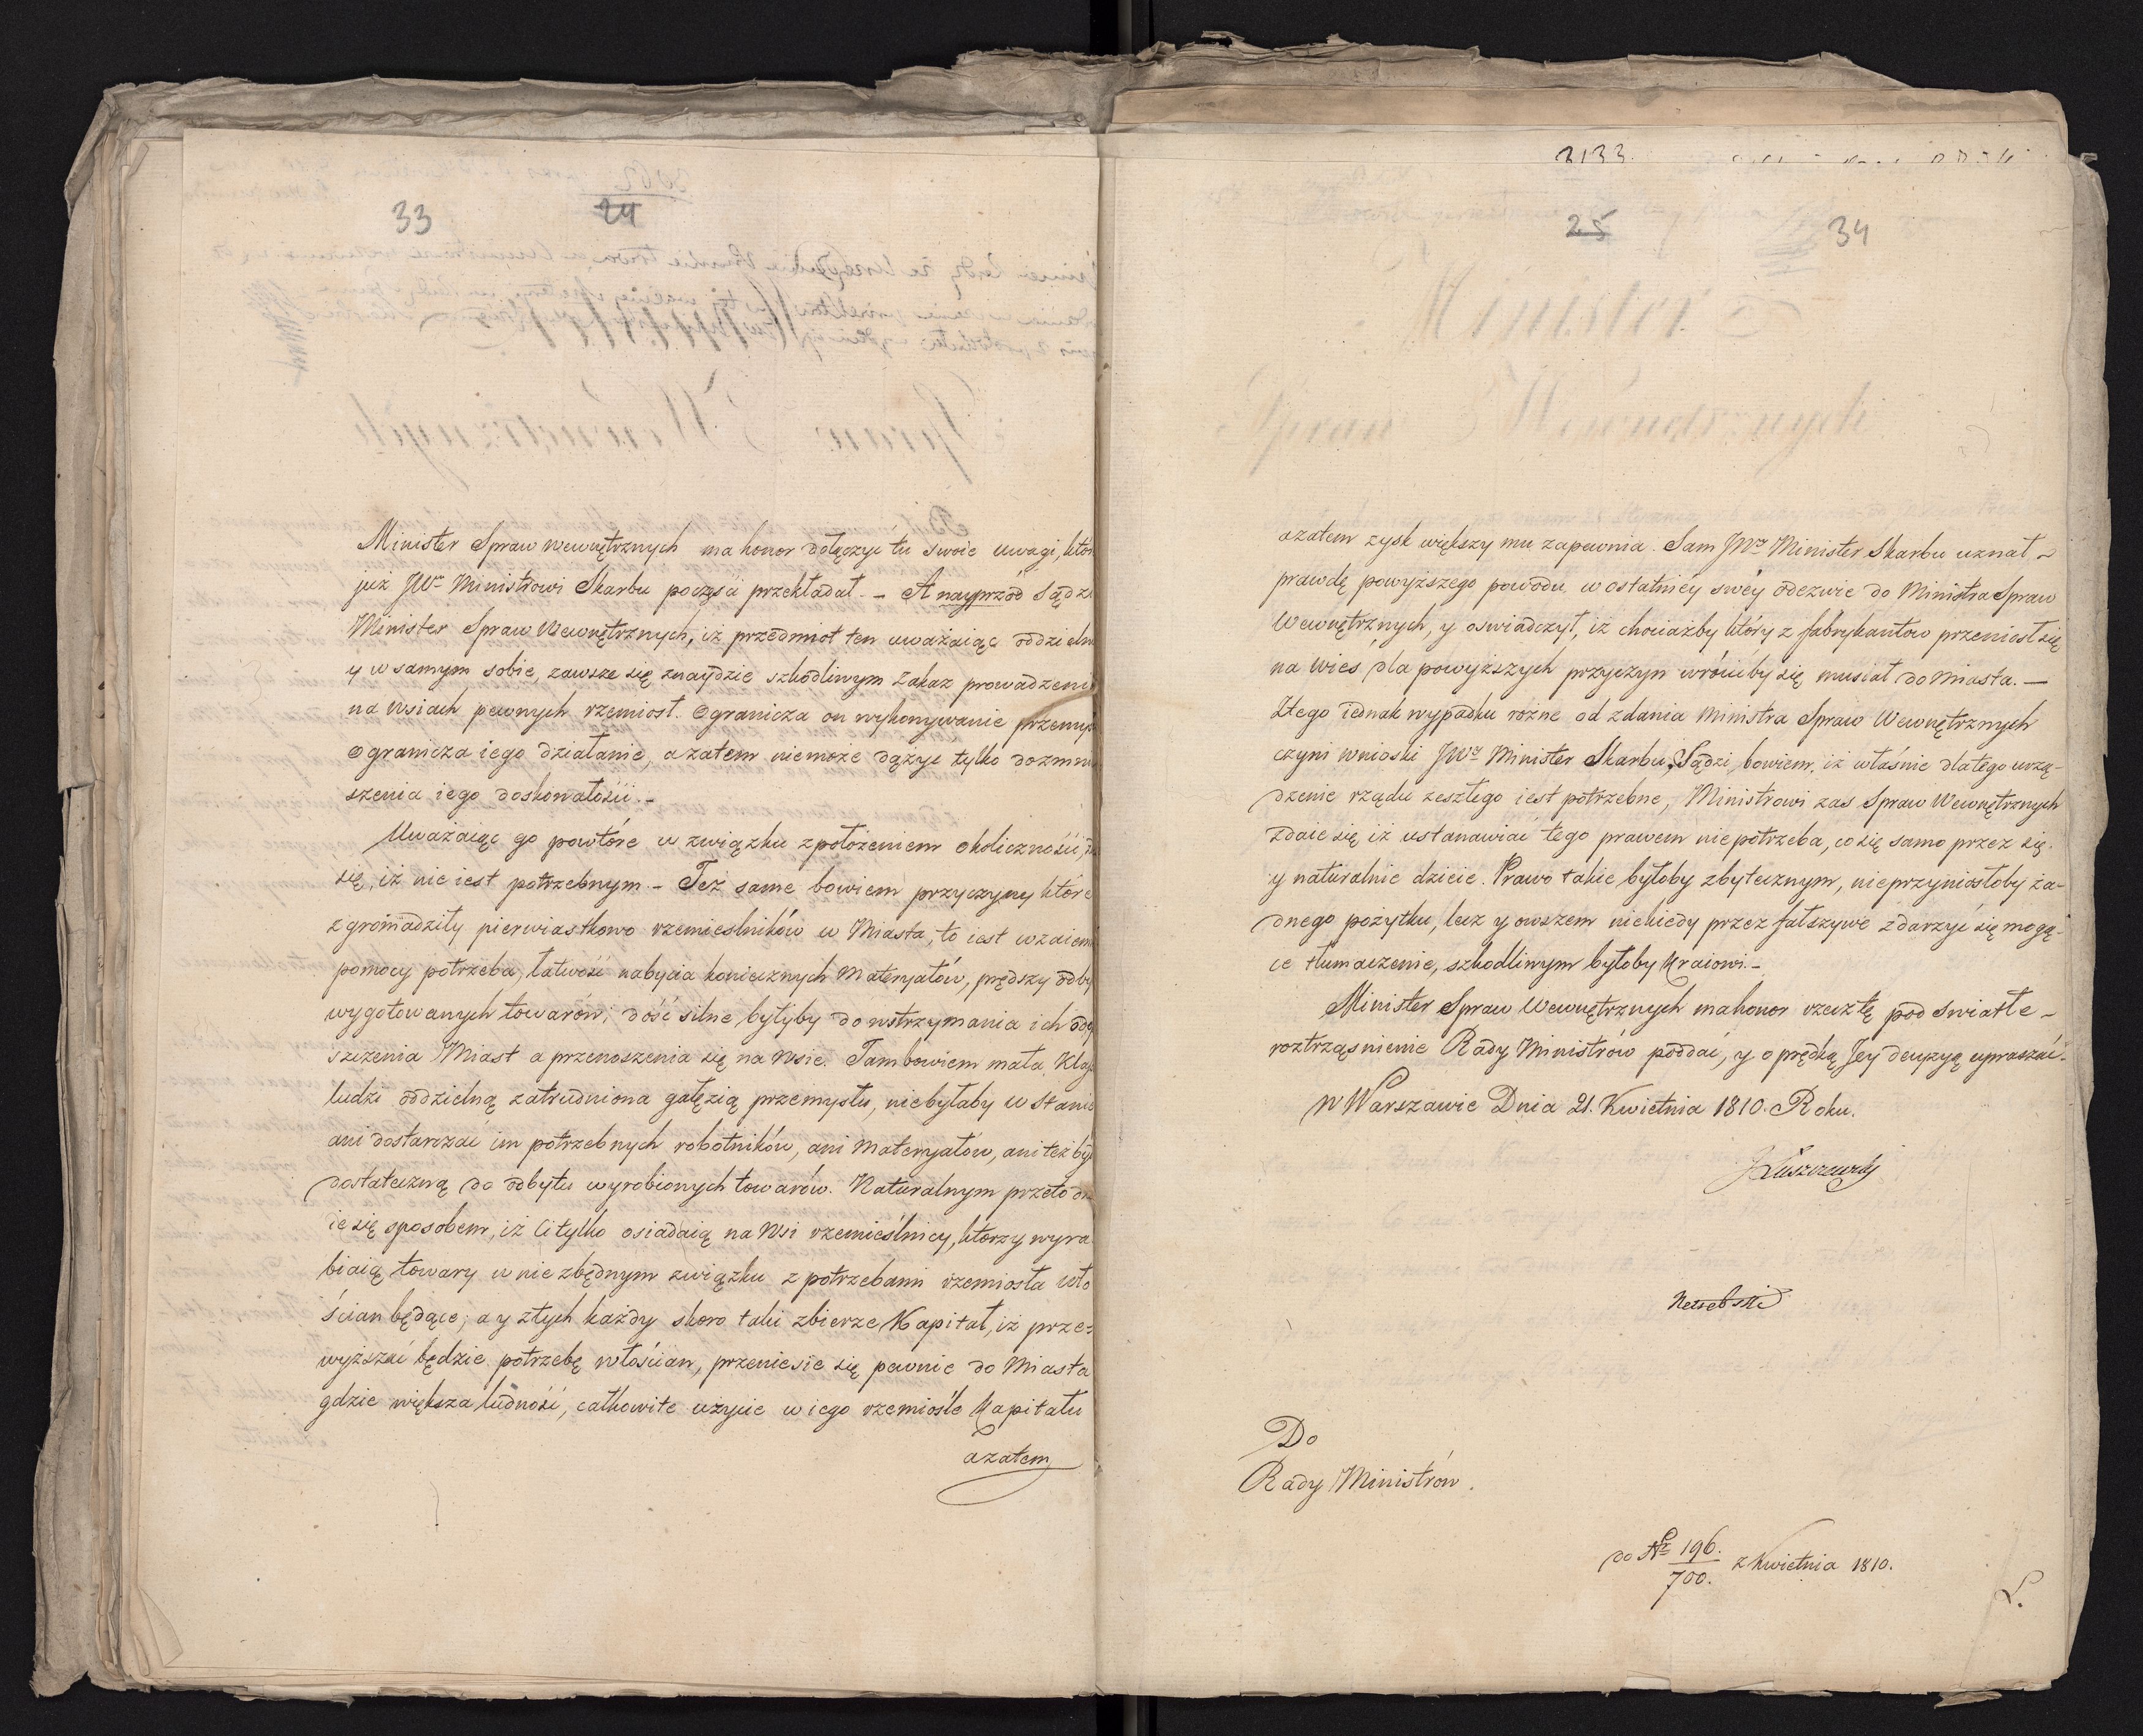 33
24
Minister Spraw Wewnętrznych ma honor dołączyć tu swoie uwagi, któr
już JWu Ministrowi Skarbu poczęści przekładał. – A nayprzód Sądzi
Minister Spraw Wewnętrznych, iż przedmiot ten uważaiąc oddzieln
y w samym sobie, zawsze się znaydzie szkodliwym Zakaz prowadzeni
na Wsiach pewnych rzemiost. Ogranicza on wykonywanie przemy
ogranicza iego działanie, a zatem niemoże dążyć tylko do zmni
szenia iego doskonałości. –
Uważaiąc go powtóre w związku z położeniem okoliczności,
się, iż nie iest potrzebnym. – Też same bowiem przyczyny które
zgromadziły pierwiastkowo rzemieslników w Miasta, to iest wzaiem
pomocy potrzeba, łatwość nabycia koniecznych Materyałów, prędszy odby
wygotowanych towarów; dość silne byłyby do wstrzymania ich od o
szczenia Miast a przenoszenia się na Wsie. Tam bowiem mała Klas
ludzi oddzielną zatrudniona gałęzią przemysłu, niebyłaby w Stanie
ani dostarczać im potrzebnych robotników, ani Materyałów, ani też by
dostateczną do odbytu wyrobionych towarów. Naturalnym przeto dz
ie się sposobem, iż Ci tylko osiadaią na Wsi rzemieślnicy, którzy wyra
biaią towary w niezbędnym związku z potrzebami rzemiosła wło
ścian będące; a y z tych każdy skoro taki zbierze Kapitał, iż prze=
wyższać będzie potrzebę włościan, przeniesie się pewnie do Miasta
gdzie większa ludność, całkowite użycie w iego rzemiośle Kapitału
a zatem
3133.
25
34
a zatem zysk większy mu zapewnia. Sam JWy Minister Skarbu uznał –
prawdę powyższego powodu, w ostatniéy swéy odezwie do Ministra Spraw
Wewnętrznych, y oswiadczył, iż chociażby który z fabrykantów przeniosł się
na wies, dla powyższych przyczyn wrócićby się musiał do Miasta. —
Z tego iednak wypadku rożne od zdania Ministra Spraw Wewnętrznych
czyni wnioski JWy Minister Skarbu, Sądzi, bowiem, iż właśnie dlatego urzą-
dzenie rządu zeszłego iest potrzebne, Ministrowi zas Spraw Wewnętrznych
zdaie się iż ustanawiać tego prawem niepotrzeba, co się samo przez się
y naturalnie dzieie. Prawo takie byłoby zbytecznym, nieprzyniosłoby ża-
dnego pożytku, lecz y owszem niekiedy przez fałszywe zdarzyć się mogą-
ce tłumaczenie, szkodliwym byłoby Kraiowi. –
Minister Spraw Wewnętrznych ma honor rzecz tę pod Swiatłe –
roztrząsnienie Rady Ministrów poddać, y o prędką Jey decyzyą upraszać. –
W Warszawie Dnia 21. Kwietnia 1810. Roku.
JŁuszczewski
Do
Rady Ministrów.
do Nr 196./700. z Kwietnia 1810.
L.